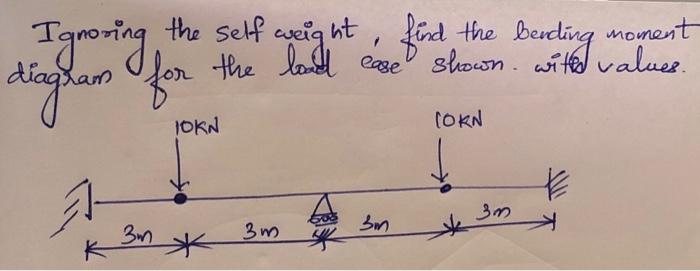 Ignoring the self weight, find the bending moment
diagram for the load case shown. with values.
10KN
10KN
3m
3m
3m
3m